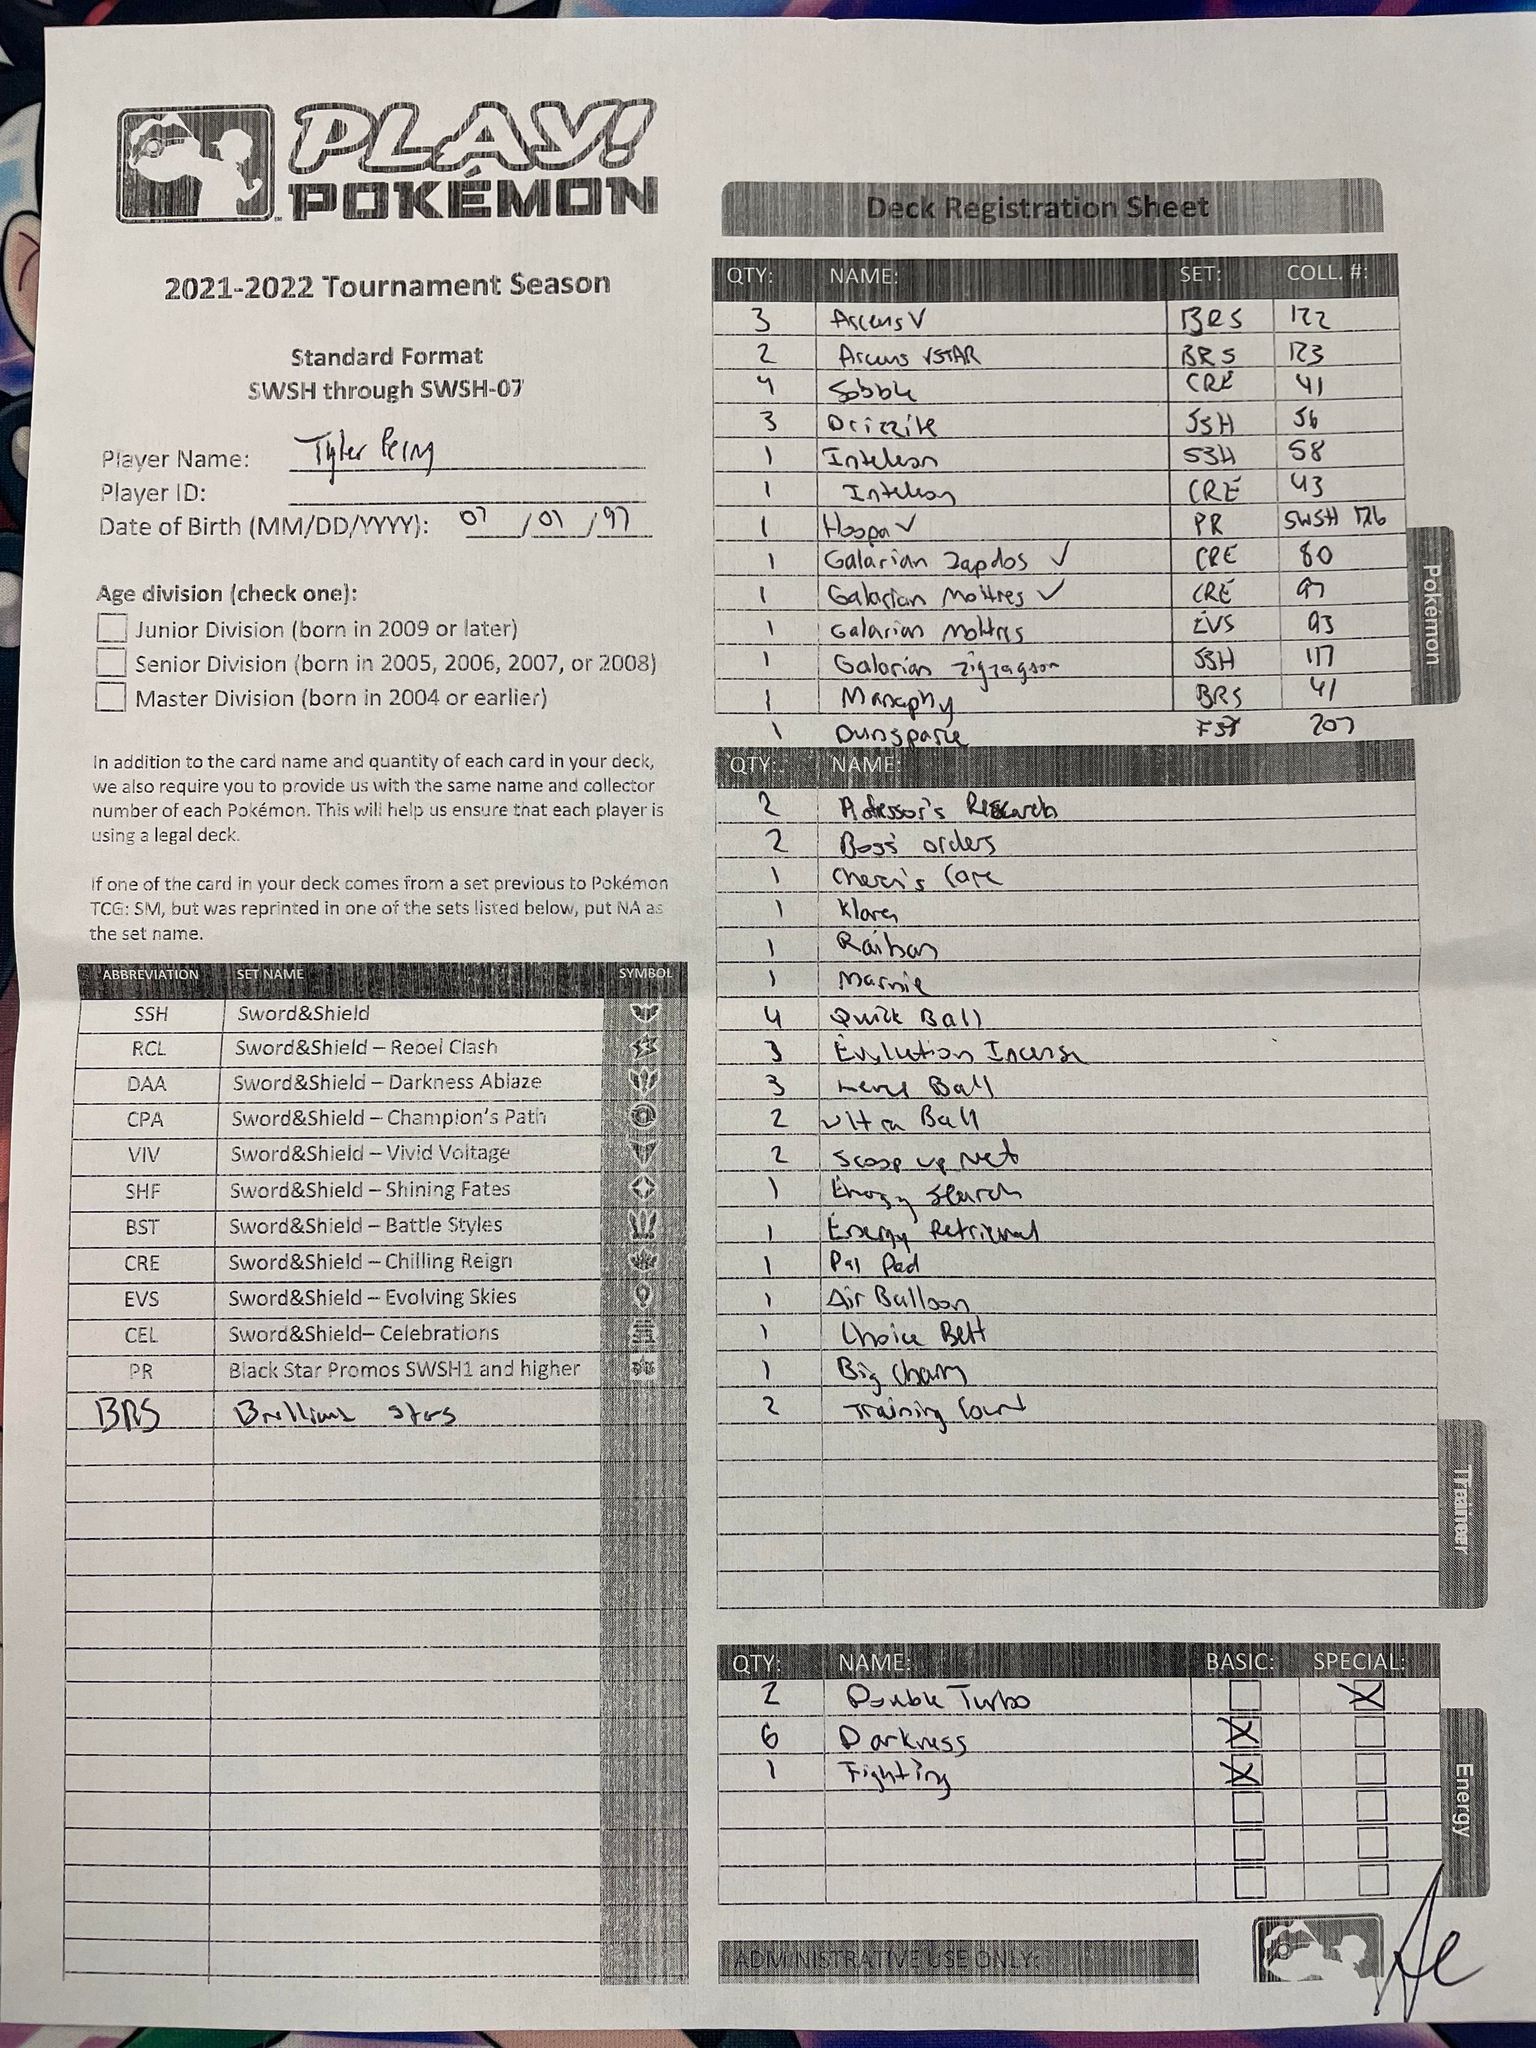 PLAY!
POKÉMON
2021-2022 Tournament Season
Standard Format
SWSH through SWSH-07
Player Name: Tyler
Player ID:
Date of Birth (MM/DD/YYYY): 07 / 01 / 97
Age division (check one):
Junior Division (born in 2009 or later)
Senior Division (born in 2005, 2006, 2007, or 2008)
Master Division (born in 2004 or earlier)
In addition to the card name and quantity of each card in your deck,
we also require you to provide us with the same name and collector
number of each Pokémon. This will help us ensure that each player is
using a legal deck.
If one of the card in your deck comes from a set previous to Pokémon
TCG: SM, but was reprinted in one of the sets listed below, put NA as
the set name.
ABBREVIATION SET NAME SYMBOL
SSH Sword&Shield
RCL Sword&Shield – Rebel Clash
DAA Sword&Shield – Darkness Ablaze
CPA Sword&Shield – Champion's Path
VIV Sword&Shield – Vivid Voltage
SHF Sword&Shield – Shining Fates
BST Sword&Shield – Battle Styles
CRE Sword&Shield – Chilling Reign
EVS Sword&Shield – Evolving Skies
CEL Sword&Shield– Celebrations
PR Black Star Promos SWSH1 and higher
BRS Brilliant Stars
Deck Registration Sheet
QTY: NAME: SET: COLL. #:
3 Arceus V BRS 122
2 Arceus VSTAR BRS 123
4 Sobble CRE 41
3 Drizzile SSH 56
1 Inteleon SSH 58
1 Inteleon CRE 43
1 Hoopa V PR SWSH 176
1 Galarian Zapdos V CRE 80
1 Galarian Moltres V CRE 97
1 Galarian Moltres EVS 93
1 Galarian Zigzagoon SSH 117
1 Manaphy BRS 41
1 Dunsparce FST 207
Pokémon
QTY: NAME:
2 Professor's Research
2 Boss' orders
1 Cheren's Care
1 Klara
1 Raihan
1 Marnie
4 Quick Ball
3 Evolution Incense
3 Level Ball
2 Ultra Ball
2 Scoop up Net
1 Energy Search
1 Energy Retrieval
1 Pal Pad
1 Air Balloon
1 Choice Belt
1 Big Charm
2 Training Court
Trainer
QTY: NAME: BASIC: SPECIAL:
2 Double Turbo X
6 Darkness X
1 Fighting X
Energy
ADMINISTRATIVE USE ONLY: